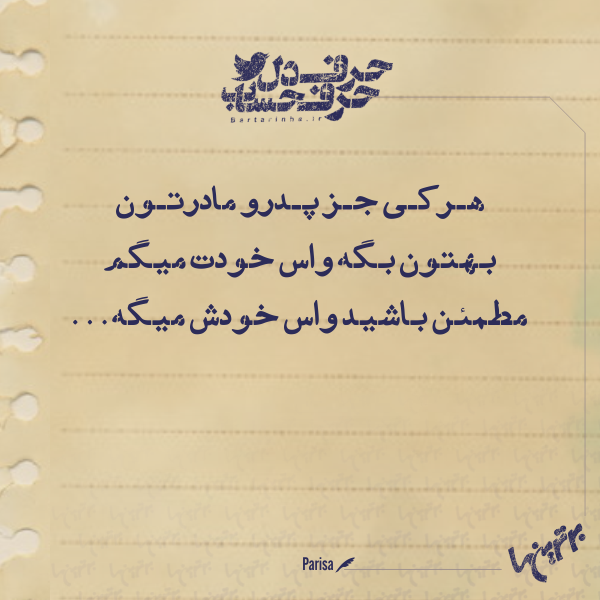 حرف دل
حرف حساب
Bartarinha.ir
هر کی جز پدر و مادرتون
بهتون بگه واس خودت میگم
مطمئن باشید واس خودش میگه...
Parisa
برترین‌ها